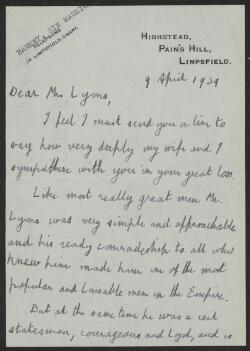 HANKEY, SIR MAURICE
TELEPHONE
14 LIMPSFIELD CHART.
HIGHSTEAD,
PAIN'S HILL,
LIMPSFIELD.
9 April 1939
Dear Mrs Lyons,
I feel I must send you a line to
say how very deeply my wife and I
sympathise with you in your great loss.
Like most really great men Mr.
Lyons was very simple and approachable
and his ready comradeship to all who
knew him made him one of the most
popular and loveable men in the Empire.
But at the same time he was a real
statesman, courageous and loyal, and is